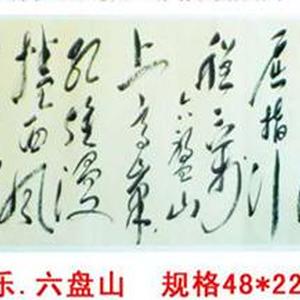 屈指行
程二万
六盘山
上高峰
红旗漫
捲西风
乐.六盘山 规格48*22